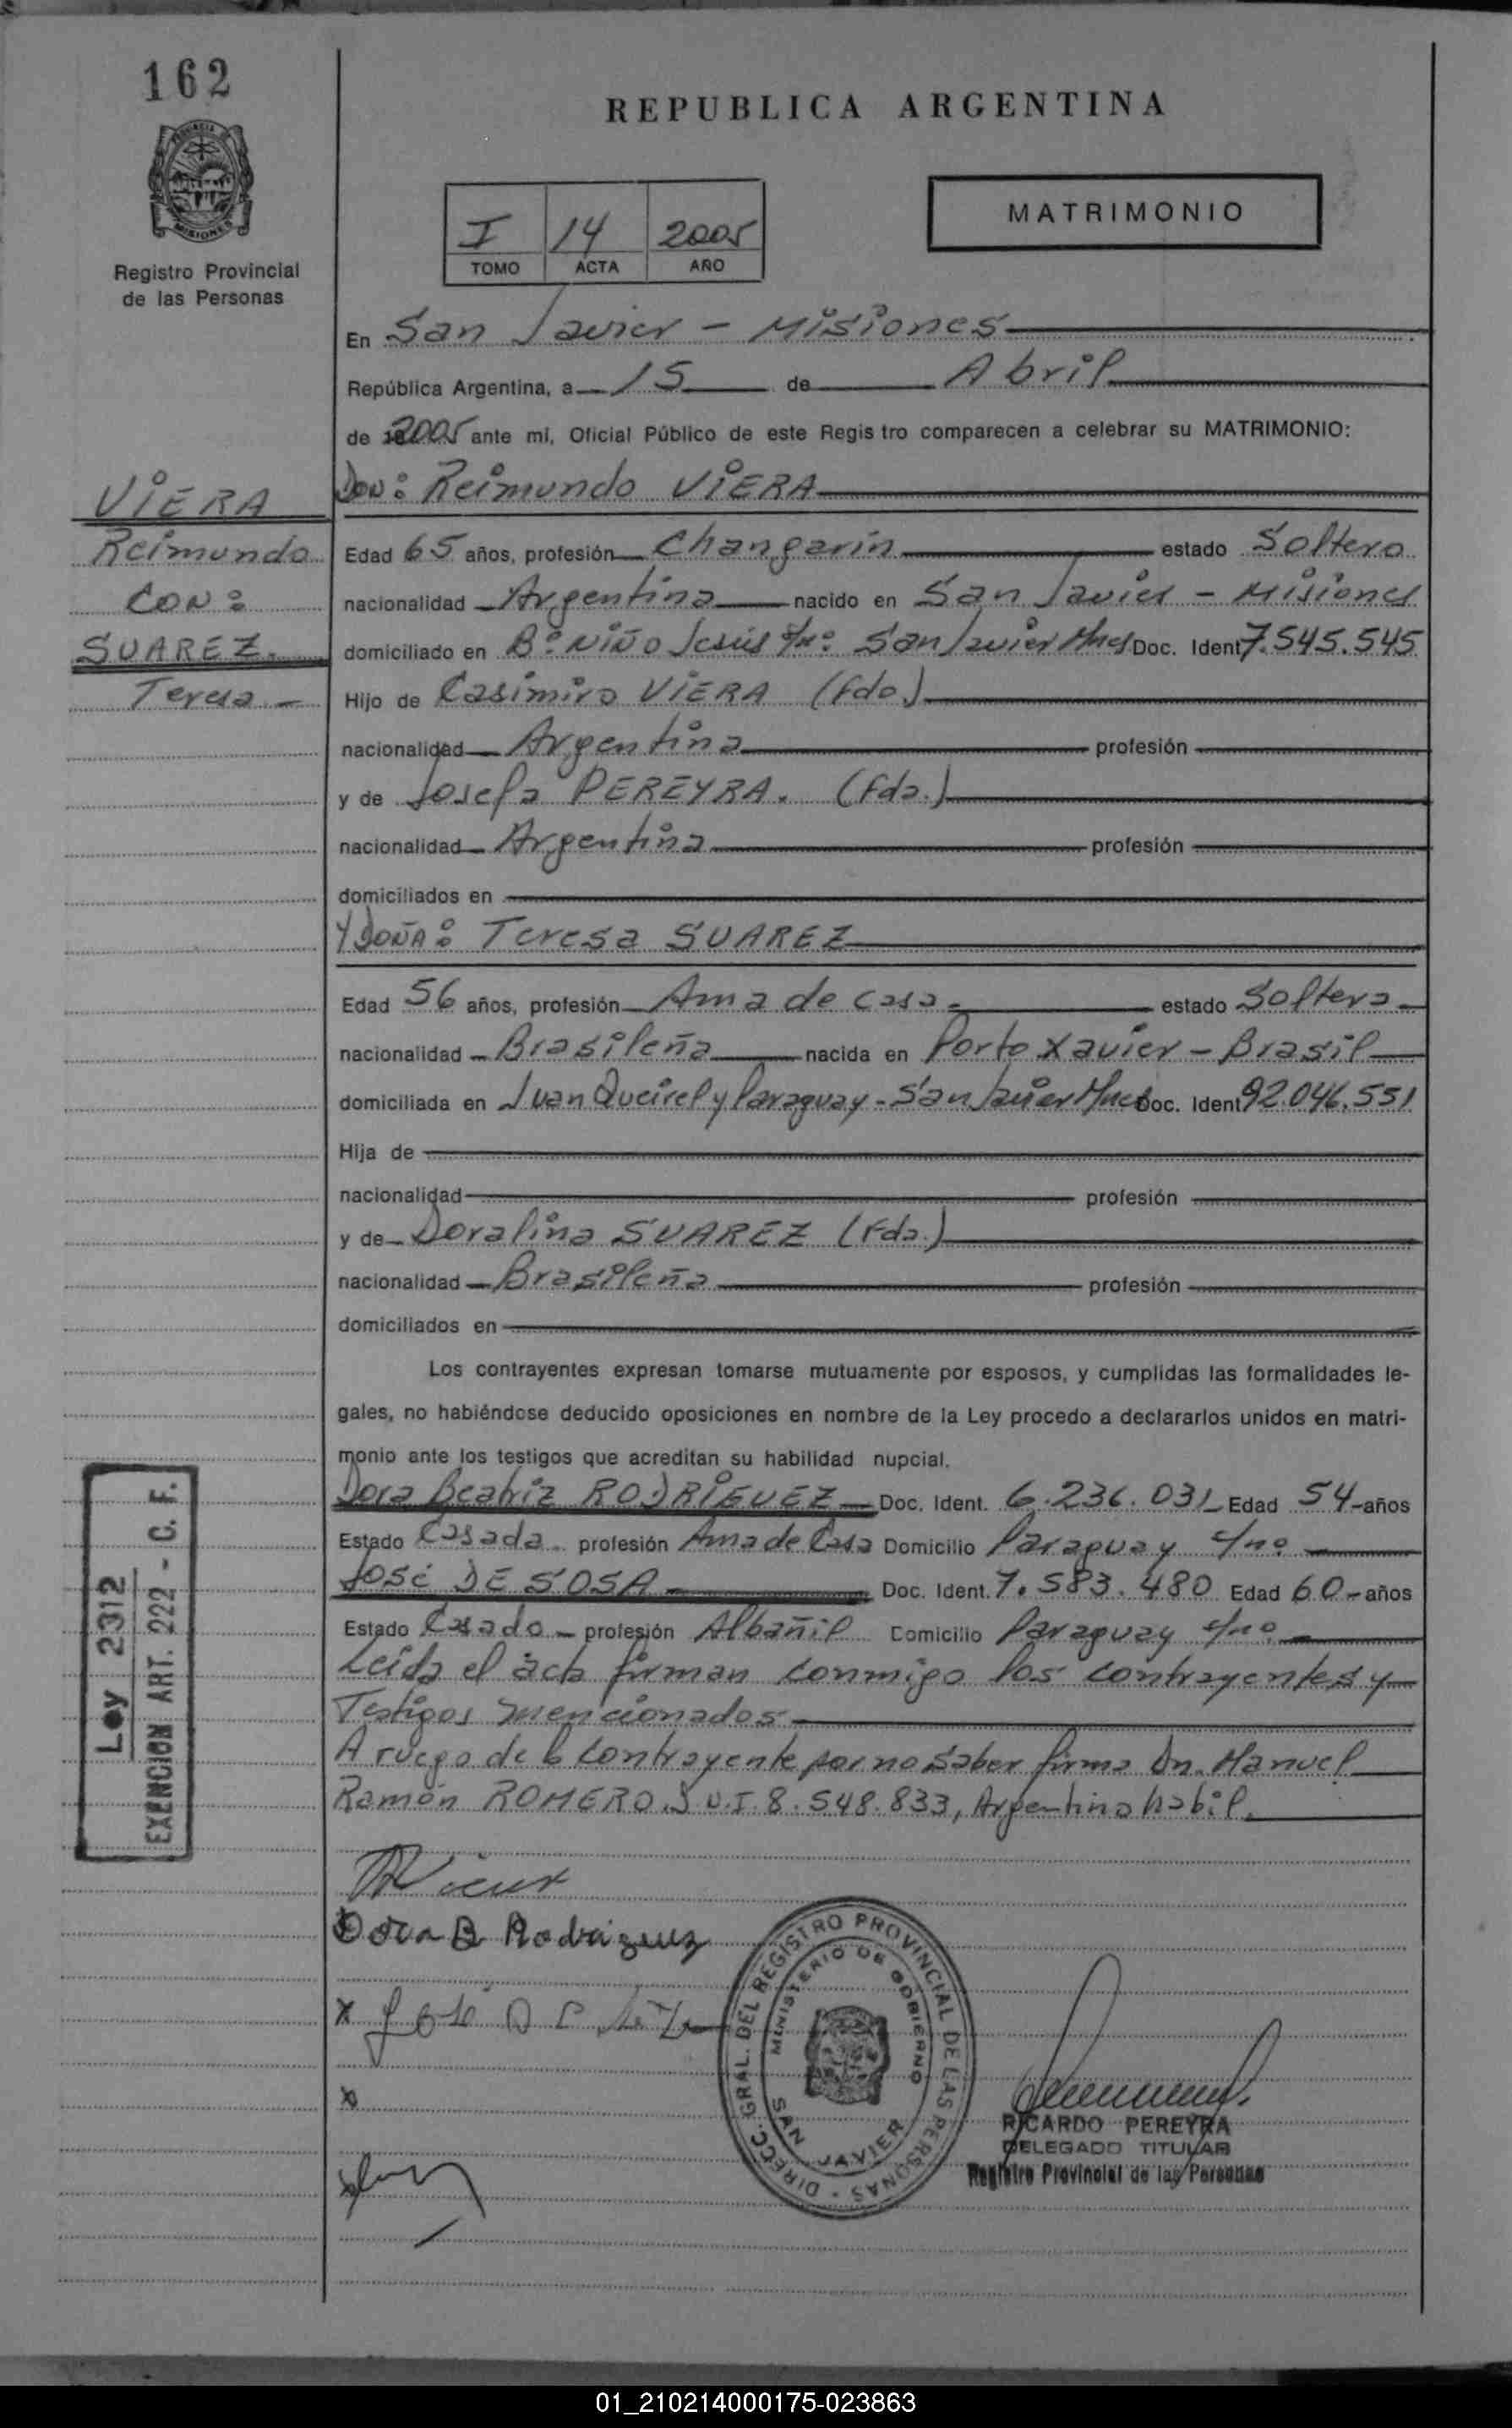 162
REPUBLICA ARGENTINA
MISIONES
Registro Provincial
de las Personas
I 14 2005
TOMO ACTA AÑO
MATRIMONIO
En San Javier - Misiones
República Argentina, a 15 de Abril
de 2005 ante mí, Oficial Público de este Regis tro comparecen a celebrar su MATRIMONIO:
VIERA
Reimundo
CON:
SUAREZ.
Teresa -
Don: Reimundo VIERA
Edad 65 años, profesión Changarín estado Soltero
nacionalidad Argentina nacido en San Javier - Misiones
domiciliado en Bº Niño Jesús s/nº San Javier Mnes Doc. Ident 7.545.545
Hijo de Casimiro VIERA (fdo.)
nacionalidad Argentina profesión
y de Josefa PEREYRA. (fda.)
nacionalidad Argentina profesión
domiciliados en
Y DOÑA: Teresa SUAREZ
Edad 56 años, profesión Ama de casa estado Soltera
nacionalidad Brasileña nacida en Porto Xavier - Brasil
domiciliada en Juan Queirel y Paraguay - San Javier Mnes Doc. Ident 92.046.551
Hija de
nacionalidad profesión
y de Doralina SUAREZ (Fda.)
nacionalidad Brasileña profesión
domiciliados en
Los contrayentes expresan tomarse mutuamente por esposos, y cumplidas las formalidades le-
gales, no habiéndose deducido oposiciones en nombre de la Ley procedo a declararlos unidos en matri-
monio ante los testigos que acreditan su habilidad nupcial.
Dora Beatriz RODRIGUEZ Doc. Ident. 6.236.031 Edad 54 años
Estado Casada profesión Ama de Casa Domicilio Paraguay s/nº
José DE SOSA Doc. Ident. 7.583.480 Edad 60 años
Estado Casado profesión Albañil Domicilio Paraguay s/nº
Leída el acta firman conmigo los contrayentes y
Testigos mencionados
A ruego de la contrayente por no saber firma Dn. Manuel
Ramón ROMERO. D.N.I. 8.548.833, Argentino habil.
Ley 2312
EXENCION ART. 222 - C. F.
Dora B Rodriguez
DIRECC. GRAL. DEL REGISTRO PROVINCIAL DE LAS PERSONAS
MINISTERIO DE GOBIERNO
SAN JAVIER
RICARDO PEREYRA
DELEGADO TITULAR
Registro Provincial de las Personas
01_210214000175-023863